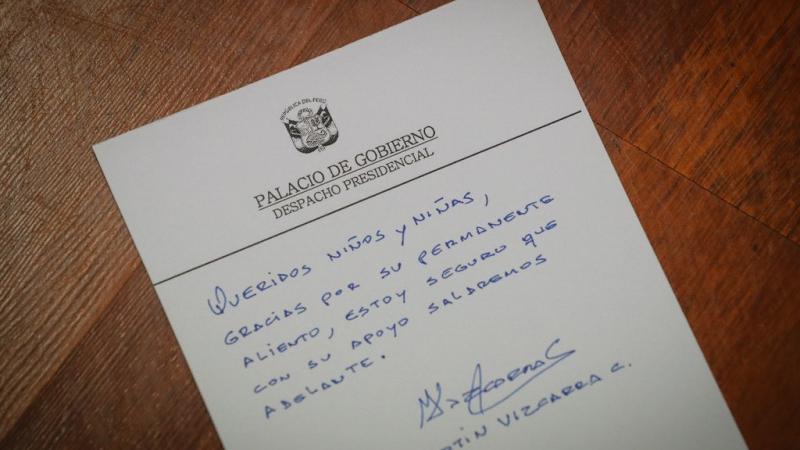 REPÚBLICA DEL PERÚ
PALACIO DE GOBIERNO
DESPACHO PRESIDENCIAL
QUERIDOS NIÑOS Y NIÑAS,
GRACIAS POR SU PERMANENTE
ALIENTO, ESTOY SEGURO QUE
CON SU APOYO SALDREMOS
ADELANTE.
VIZCARRA C.